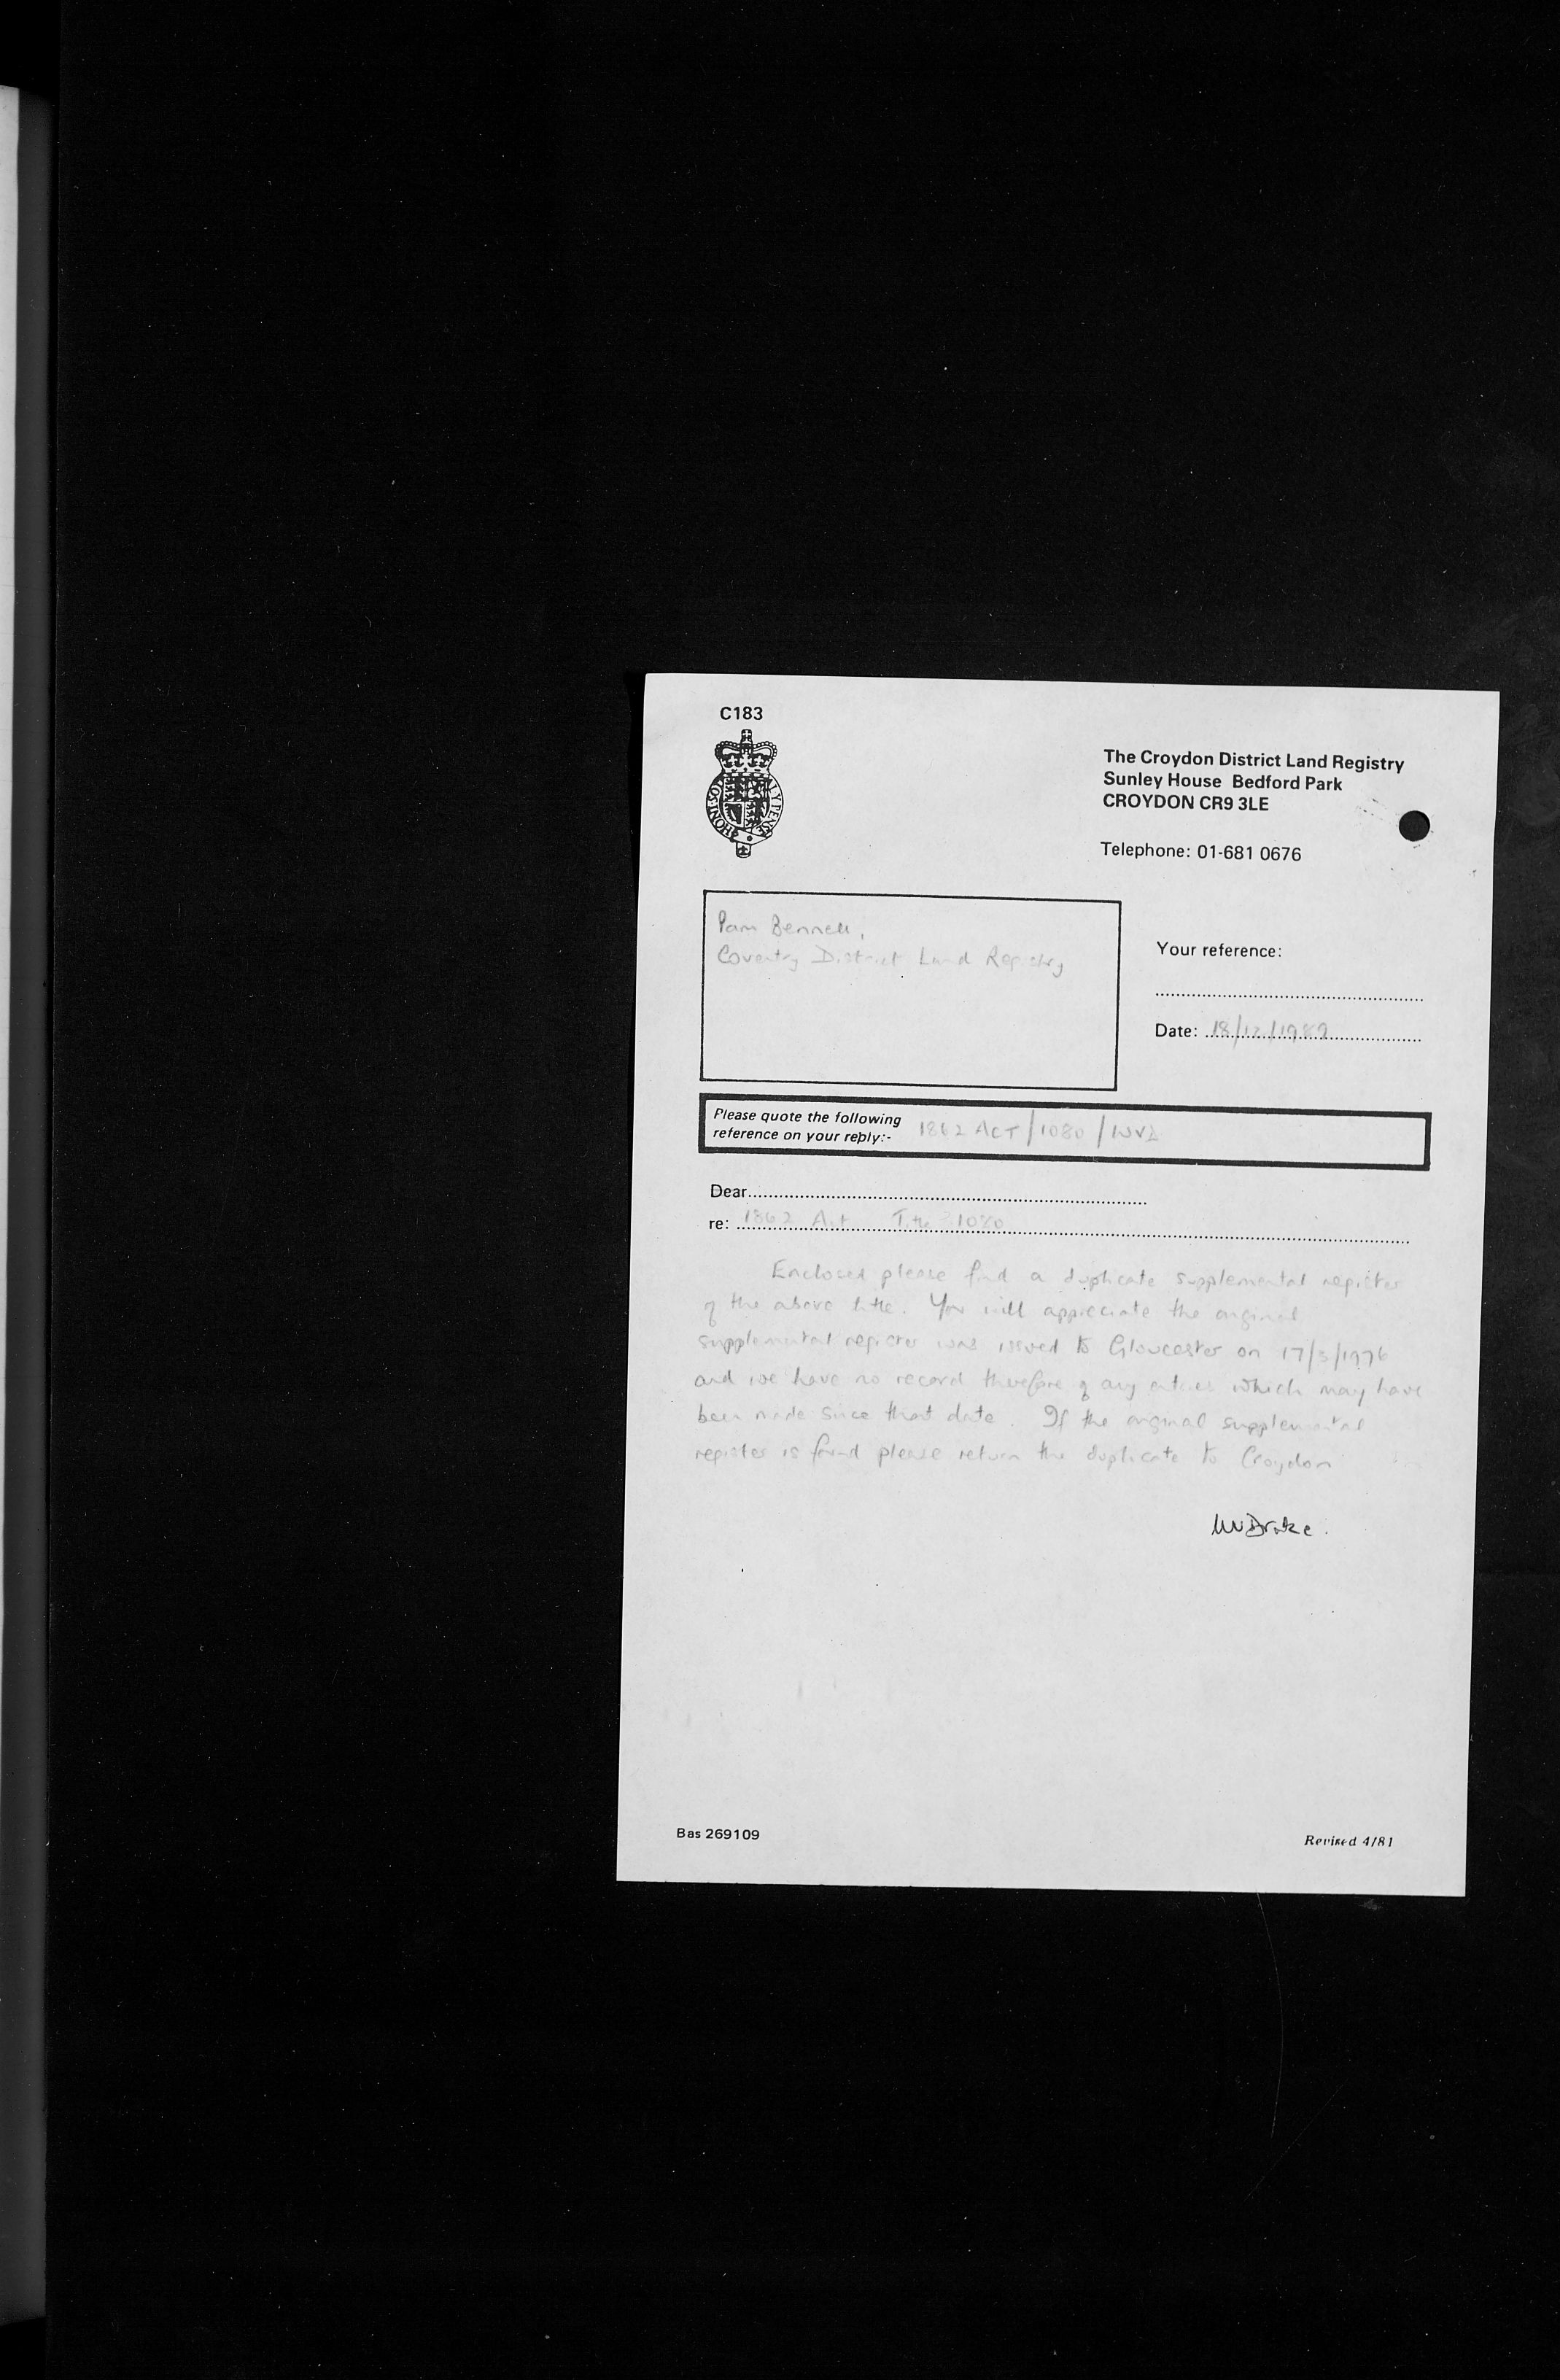 C183
HONI SOI
MAL Y PENSE
The Croydon District Land Registry
Sunley House Bedford Park
CROYDON CR9 3LE
Telephone: 01-681 0676
Pam Bennett,
Coventry District Land Registry
Your reference:
Date: 18/12/1989
Please quote the following
reference on your reply:- 1862 ACT/1080/
Dear
re: 1862 Act Title 1080
Enclosed please find a duplicate supplemental register
of the above title. You will appreciate the original
supplemental register was issued to Gloucester on 17/3/1976
and we have no record therefore of any entries which may have
been made since that date. If the original supplemental
register is found please return the duplicate to Croydon
Drake.
Bas 269109
Revised 4/81